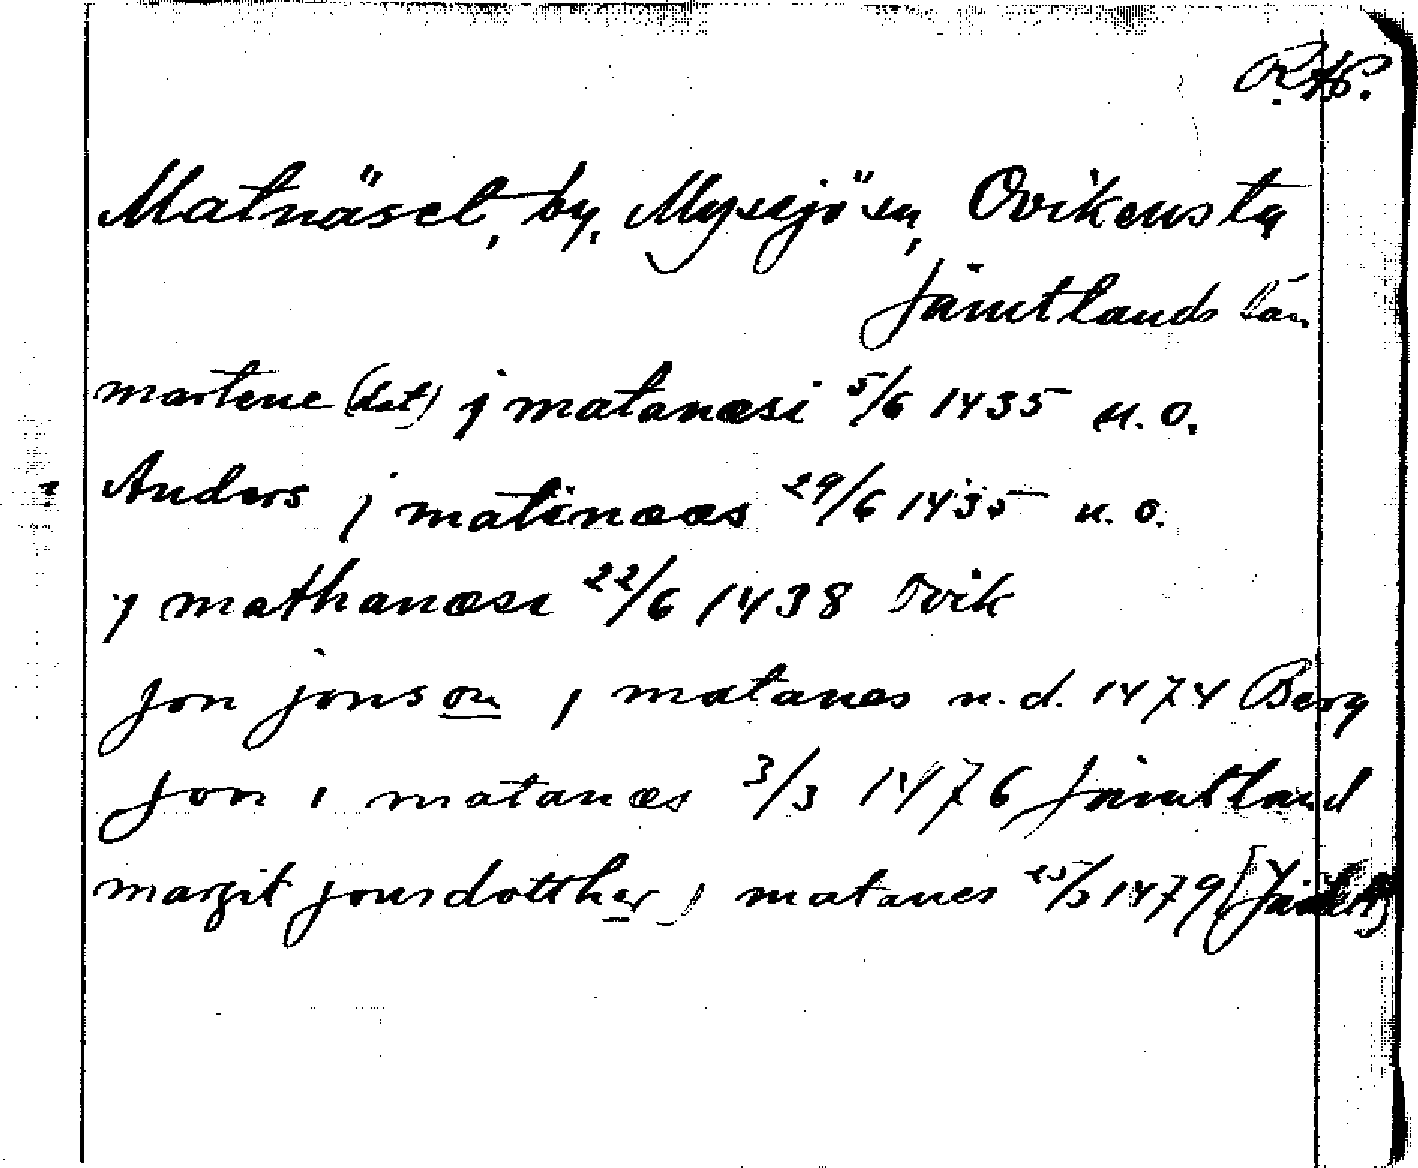 R.Ap.
Matnäset, by, Myssjö sn, Ovikens tg
Jämtlands län
martene (dat) j matanæsi 5/6 1435 u.o.
Anders j matinæes 29/6 1435 u.o.
j mathanæsi 22/6 1438 Ovik
jon jonson j matanes u.d. 1474 Berg
jon i matanæs 3/3 1476 Jämtland
margit jonsdotther j matanes 25/3 1479